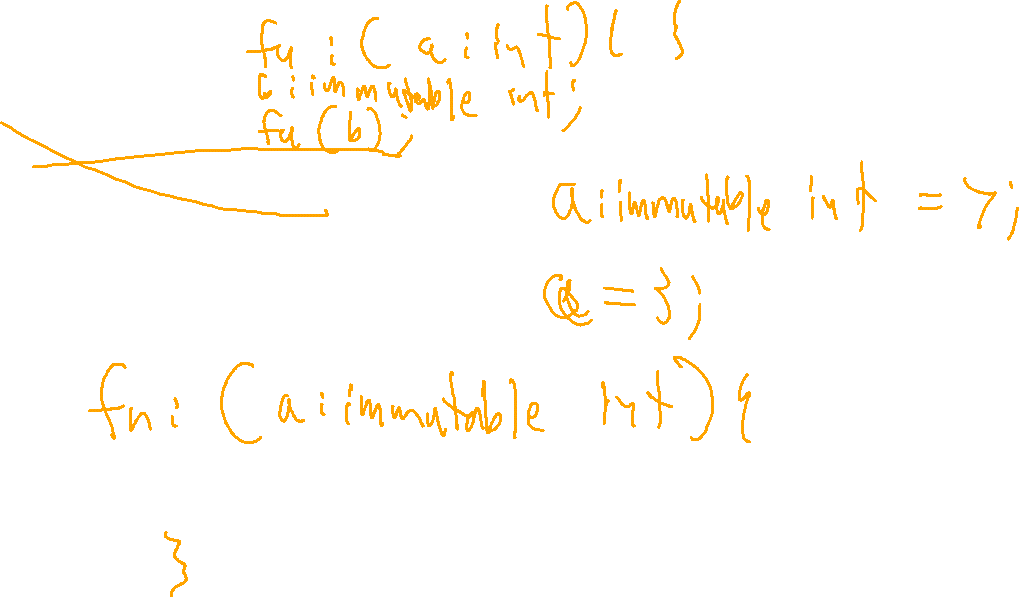 fn : ( a : int ) { }
b : immutable int;
fn (b);
a : immutable int = 7;
a = 3;
fn : ( a : immutable int ) {
}